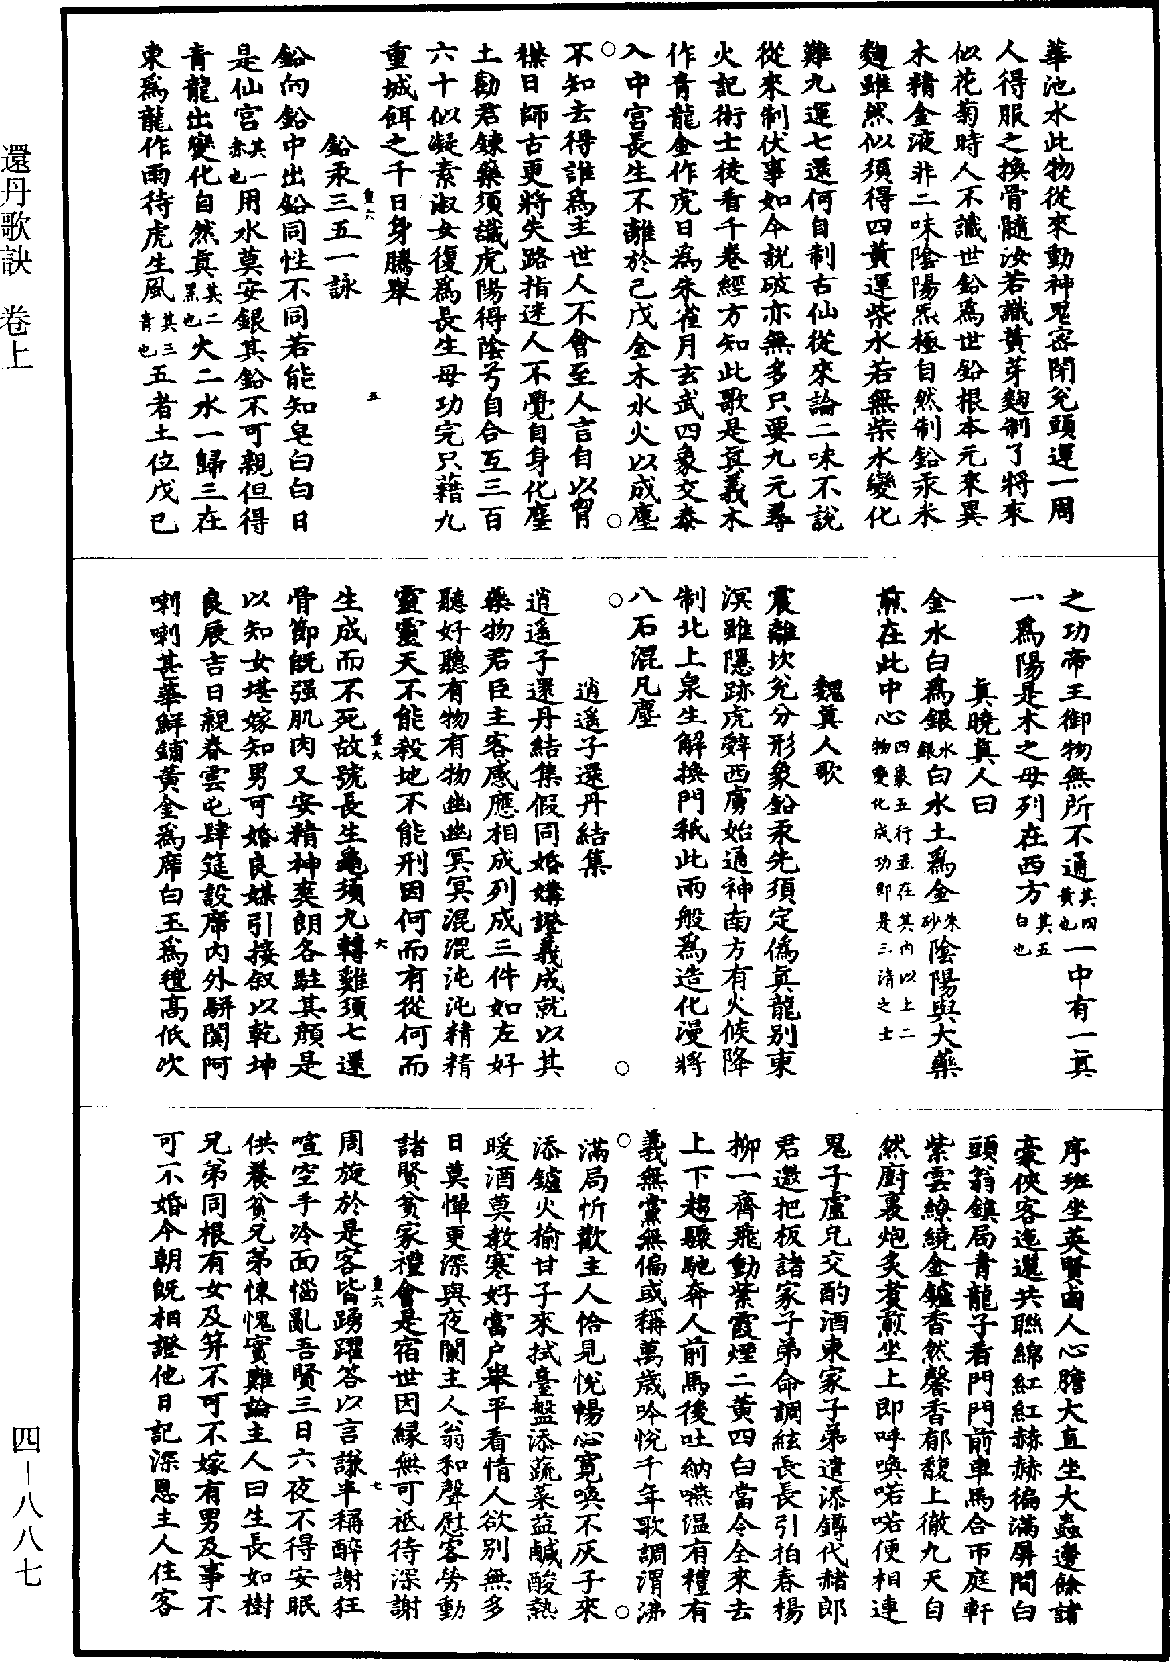 還丹歌訣　卷上
四—八八七
華池水此物從來動神鬼密閉兌頭運一周
人得服之換骨髓汝若識黃芽麴制了將來
似花菊時人不識世鉛爲世鉛根本元來異
木精金液非二味陰陽炁極自然制鉛汞米
麴雖然似須得四黃運柴水若無柴水變化
難九運七還何自制古仙從來論二味不說
從來制伏事如今說破亦無多只要九元尋
火記術士徒看千卷經方知此歌是眞義木
作青龍金作虎日爲朱雀月玄武四象交泰
入中宮長生不離於己戊金木水火以成塵
不知去得誰爲主世人不會至人言自以管
模日師古更將失路指迷人不覺自身化塵
土勸君鍊藥須識虎陽得陰兮自合互三百
六十似凝素淑女復爲長生母功完只藉九
重城餌之千日身騰舉
鉛汞三五一詠
鉛向鉛中出鉛同性不同若能知皂白白日
是仙宮其一赤也用水莫安銀其鉛不可親但得
青龍出變化自然眞其二黑也火二水一歸三在
東爲龍作雨待虎生風其三青也五者土位戊己
之功帝王御物無所不通其四黃也一中有一眞
一爲陽是木之母列在西方其五白也
眞曉眞人曰
金水白爲銀水銀白水土爲金朱砂陰陽與大藥
煎在此中心四象五行並在其內以上二物變化成功即是三清之士
魏眞人歌
震離坎兌分形象鉛汞先須定僞眞龍別東
溟雖隱跡虎辭西虜始通神南方有火候降
制北上泉生解換門秖此兩般爲造化漫將
八石混凡塵
逍遥子還丹結集
逍遥子還丹結集假同婚媾證義成就以其
藥物君臣主客感應相成列成三件如左好
聽好聽有物有物幽幽冥冥混混沌沌精精
靈靈天不能殺地不能刑因何而有從何而
生成而不死故號長生龜須九轉雞須七還
骨節旣强肌肉又安精神爽朗各駐其顏是
以知女堪嫁知男可婚良媒引接叙以乾坤
良辰吉日親眷雲屯肆筵設席內外駢闐阿
喇喇甚華鮮鋪黃金爲席白玉爲氊高低次
序班坐英賢鹵人心膽大直坐大蟲邊餘諸
豪俠客迤邐共聯綿紅紅赫赫徧滿屏間白
頭翁鎮局青龍子看門門前車馬合帀庭軒
紫雲繚繞金鑪香然馨香郁馥上徹九天自
然廚裏炮炙煑煎坐上即呼喚喏喏便相連
鬼子盧兄交酌酒東家子弟遣添鐏代赭郎
君邀把板諸家子弟命調絃長長引拍春楊
柳一齊飛動紫霞煙二黃四白當令全來去
上下趨驟馳奔人前馬後吐納嚥温有禮有
義無黨無偏或稱萬歲吟悅千年歌調渭沸
滿局忻歡主人恰見悅暢心寬喚不灰子來
添鑪火榆甘子來拭臺盤添蔬菜益鹹酸熱
暖酒莫教寒好當户舉平看情人欲別無多
日莫憚更深與夜闌主人翁和聲慰客勞動
諸賢貧家禮會是宿世因緣無可祗待深謝
周旋於是客皆踴躍答以言謙半稱醉謝狂
喧空手冷面惱亂吾賢三日六夜不得安眠
供養貧兄弟悚愧實難論主人曰生長如樹
兄弟同根有女及笄不可不嫁有男及事不
可不婚今朝旣相證他日記深恩主人住客